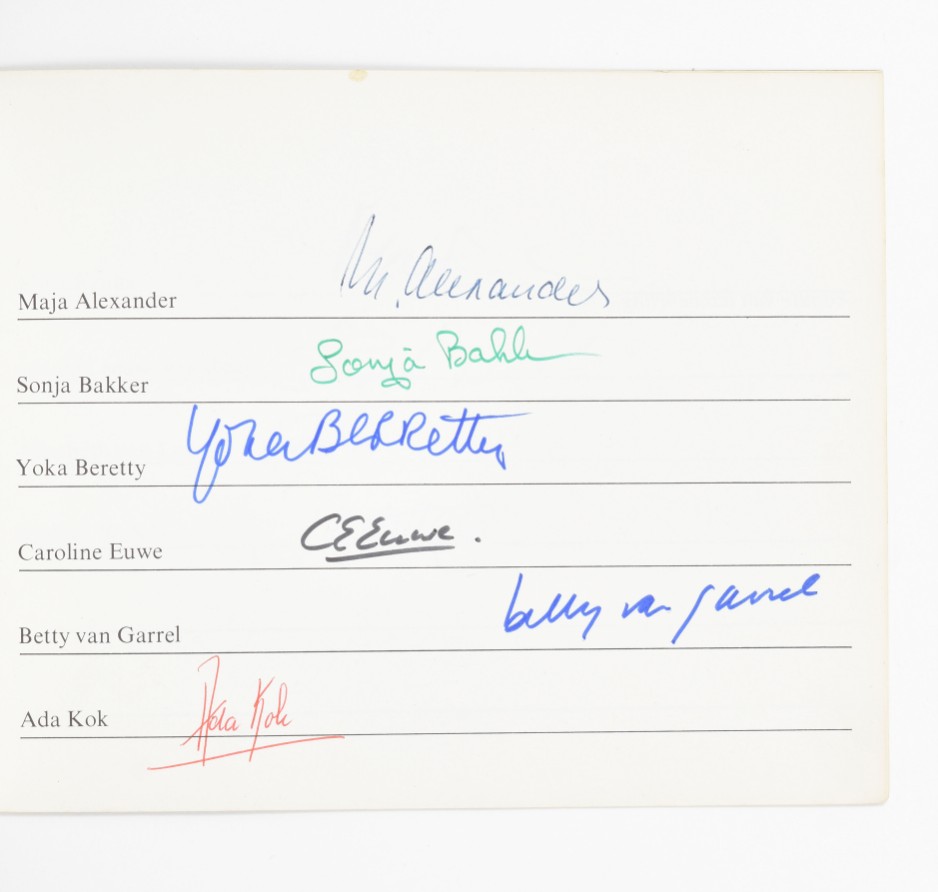 Maja Alexander M. Alexander
Sonja Bakker Sonja Bakk
Yoka Beretty Yoka Beretty
Caroline Euwe CEEuwe.
Betty van Garrel betty van garrel
Ada Kok Ada Kok